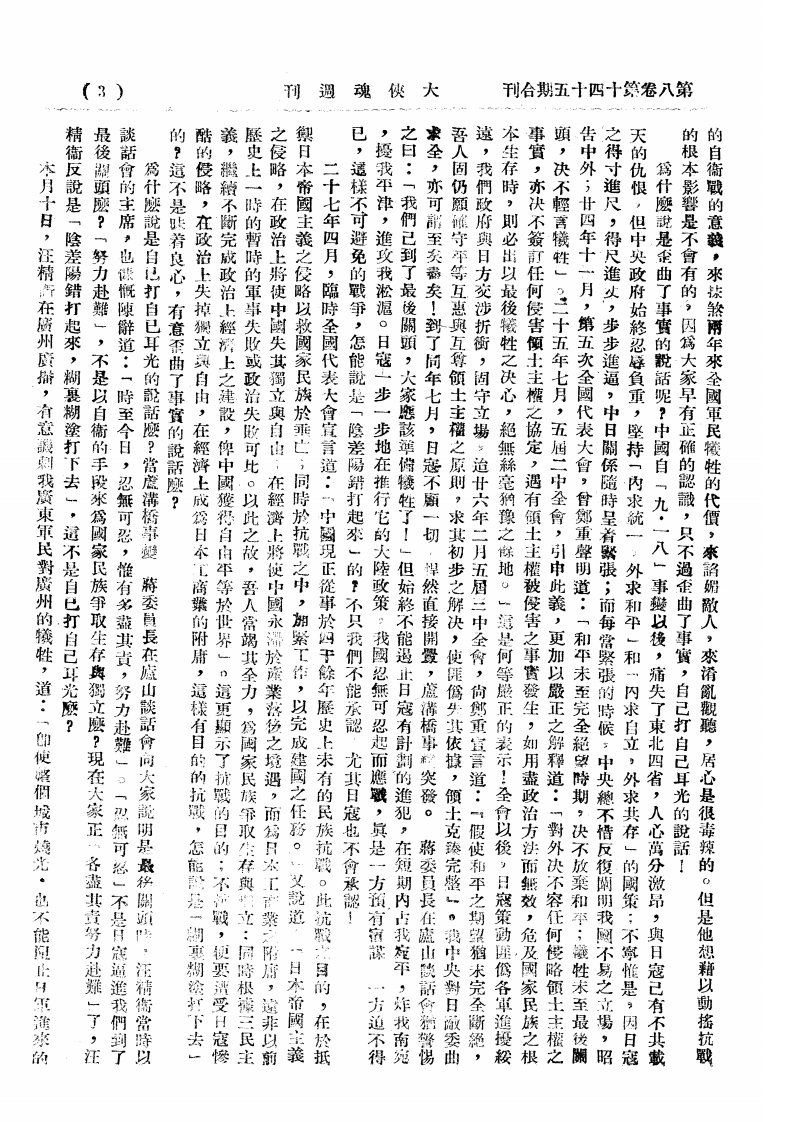 第八卷第十四十五期合刊
大俠魂週刊
(3)
的自衛戰的意義，來抹煞兩年來全國軍民犧牲的代價，來諂媚敵人，來淆亂觀聽，居心是很毒辣的。但是他想藉以動搖抗戰
的根本影響是不會有的，因爲大家早有正確的認識，只不過歪曲了事實，自己打自己耳光的說話！
爲什麽說是歪曲了事實的說話呢？中國自「九·一八」事變以後，痛失了東北四省，人心萬分激昂，與日寇已有不共戴
天的仇恨，但中央政府始終忍辱負重，堅持「內求統一，外求和平」和「內求自立，外求共存」的國策；不寧惟是，因日寇
之得寸進尺，得尺進丈，步步進逼，中日關係隨時呈着緊張；而每當緊張的時候，中央總不惜反復闡明我國不易之立場，昭
告中外；廿四年十一月，第五次全國代表大會，曾鄭重聲明道：「和平未至完全絕望時期，決不放棄和平；犧牲未至最後關
頭，決不輕言犧牲」。二十五年七月，五屆二中全會，引申此義，更加以嚴正之解釋道：「對外決不容任何侵略領土主權之
事實，亦決不簽訂任何侵害領土主權之協定，遇有領土主權被侵害之事實發生，如用盡政治方法而無效，危及國家民族之根
本生存時，則必出以最後犧牲之決心，絕無絲毫猶豫之餘地。」這是何等嚴正的表示！全會以後，日寇策動匪僞各軍進擾綏
遠，我們政府與日方交涉折衝，固守立場。迨廿六年二月五屆三中全會，尙鄭重宣言道：「假使和平之期望猶未完全斷絕，
吾人固仍願確守平等互惠與互尊領土主權之原則，求其初步之解決，使匪僞失其依據，領土克臻完整」。我中央對日敵委曲
求全，亦可謂至矣盡矣！到了同年七月，日寇不顧一切，悍然直接開釁，蘆溝橋事變突發。 蔣委員長在廬山談話會猶警惕
之曰：「我們已到了最後關頭，大家應該準備犧牲了！」但始終不能遏止日寇有計劃的進犯，在短期內占我宛平，炸我南宛
，擾我平津，進攻我淞滬。日寇一步一步地在推行它的大陸政策，我國忍無可忍起而應戰，眞是一方預有宿謀，一方迫不得
已，這樣不可避免的戰爭，怎能說是「陰差陽錯打起來」的？不只我們不能承認，尤其日寇也不會承認！
二十七年四月，臨時全國代表大會宣言道：「中國現正從事於四千餘年歷史上未有的民族抗戰。此抗戰之目的，在於抵
禦日本帝國主義之侵略以救國家民族於垂亡；同時於抗戰之中，加緊工作，以完成建國之任務。」又說道：「日本帝國主義
之侵略，在政治上將使中國失其獨立與自由；在經濟上將使中國永滯於產業落後之境遇，而爲日本工商業之附庸，遠非以前
歷史上一時的暫時的軍事失敗或政治失敗可比。以此之故，吾人當竭其全力，爲國家民族爭取生存與獨立；同時根據三民主
義，繼續不斷完成政治上經濟上之建設，俾中國獲得自由平等於世界」。這更顯示了抗戰的目的；不抗戰，便要遭受日寇慘
酷的侵略，在政治上失掉獨立與自由，在經濟上成爲日本工商業的附庸，這樣有目的的抗戰，怎能說是「糊裏糊塗打下去」
的？這不是昧着良心，有意歪曲了事實的說話麽？
爲什麽說是自己打自己耳光的說話麽？當蘆溝橋事變 蔣委員長在廬山談話會向大家說明是最後關頭時，汪精衛當時以
談話會的主席，也慷慨陳辭道：「時至今日，忍無可忍，惟有多盡其責，努力赴難」。「忍無可忍」不是日寇逼進我們到了
最後關頭麽？「努力赴難」，不是以自衛的手段來爲國家民族爭取生存與獨立麽？現在大家正「各盡其責努力赴難」了，汪
精衛反說是「陰差陽錯打起來，糊裏糊塗打下去」，這不是自己打自己耳光麽？
本月十日，汪精衛在廣州廣播，有意諷刺我廣東軍民對廣州的犧牲，道：「卽使整個城市燒光，也不能阻止日軍進來的